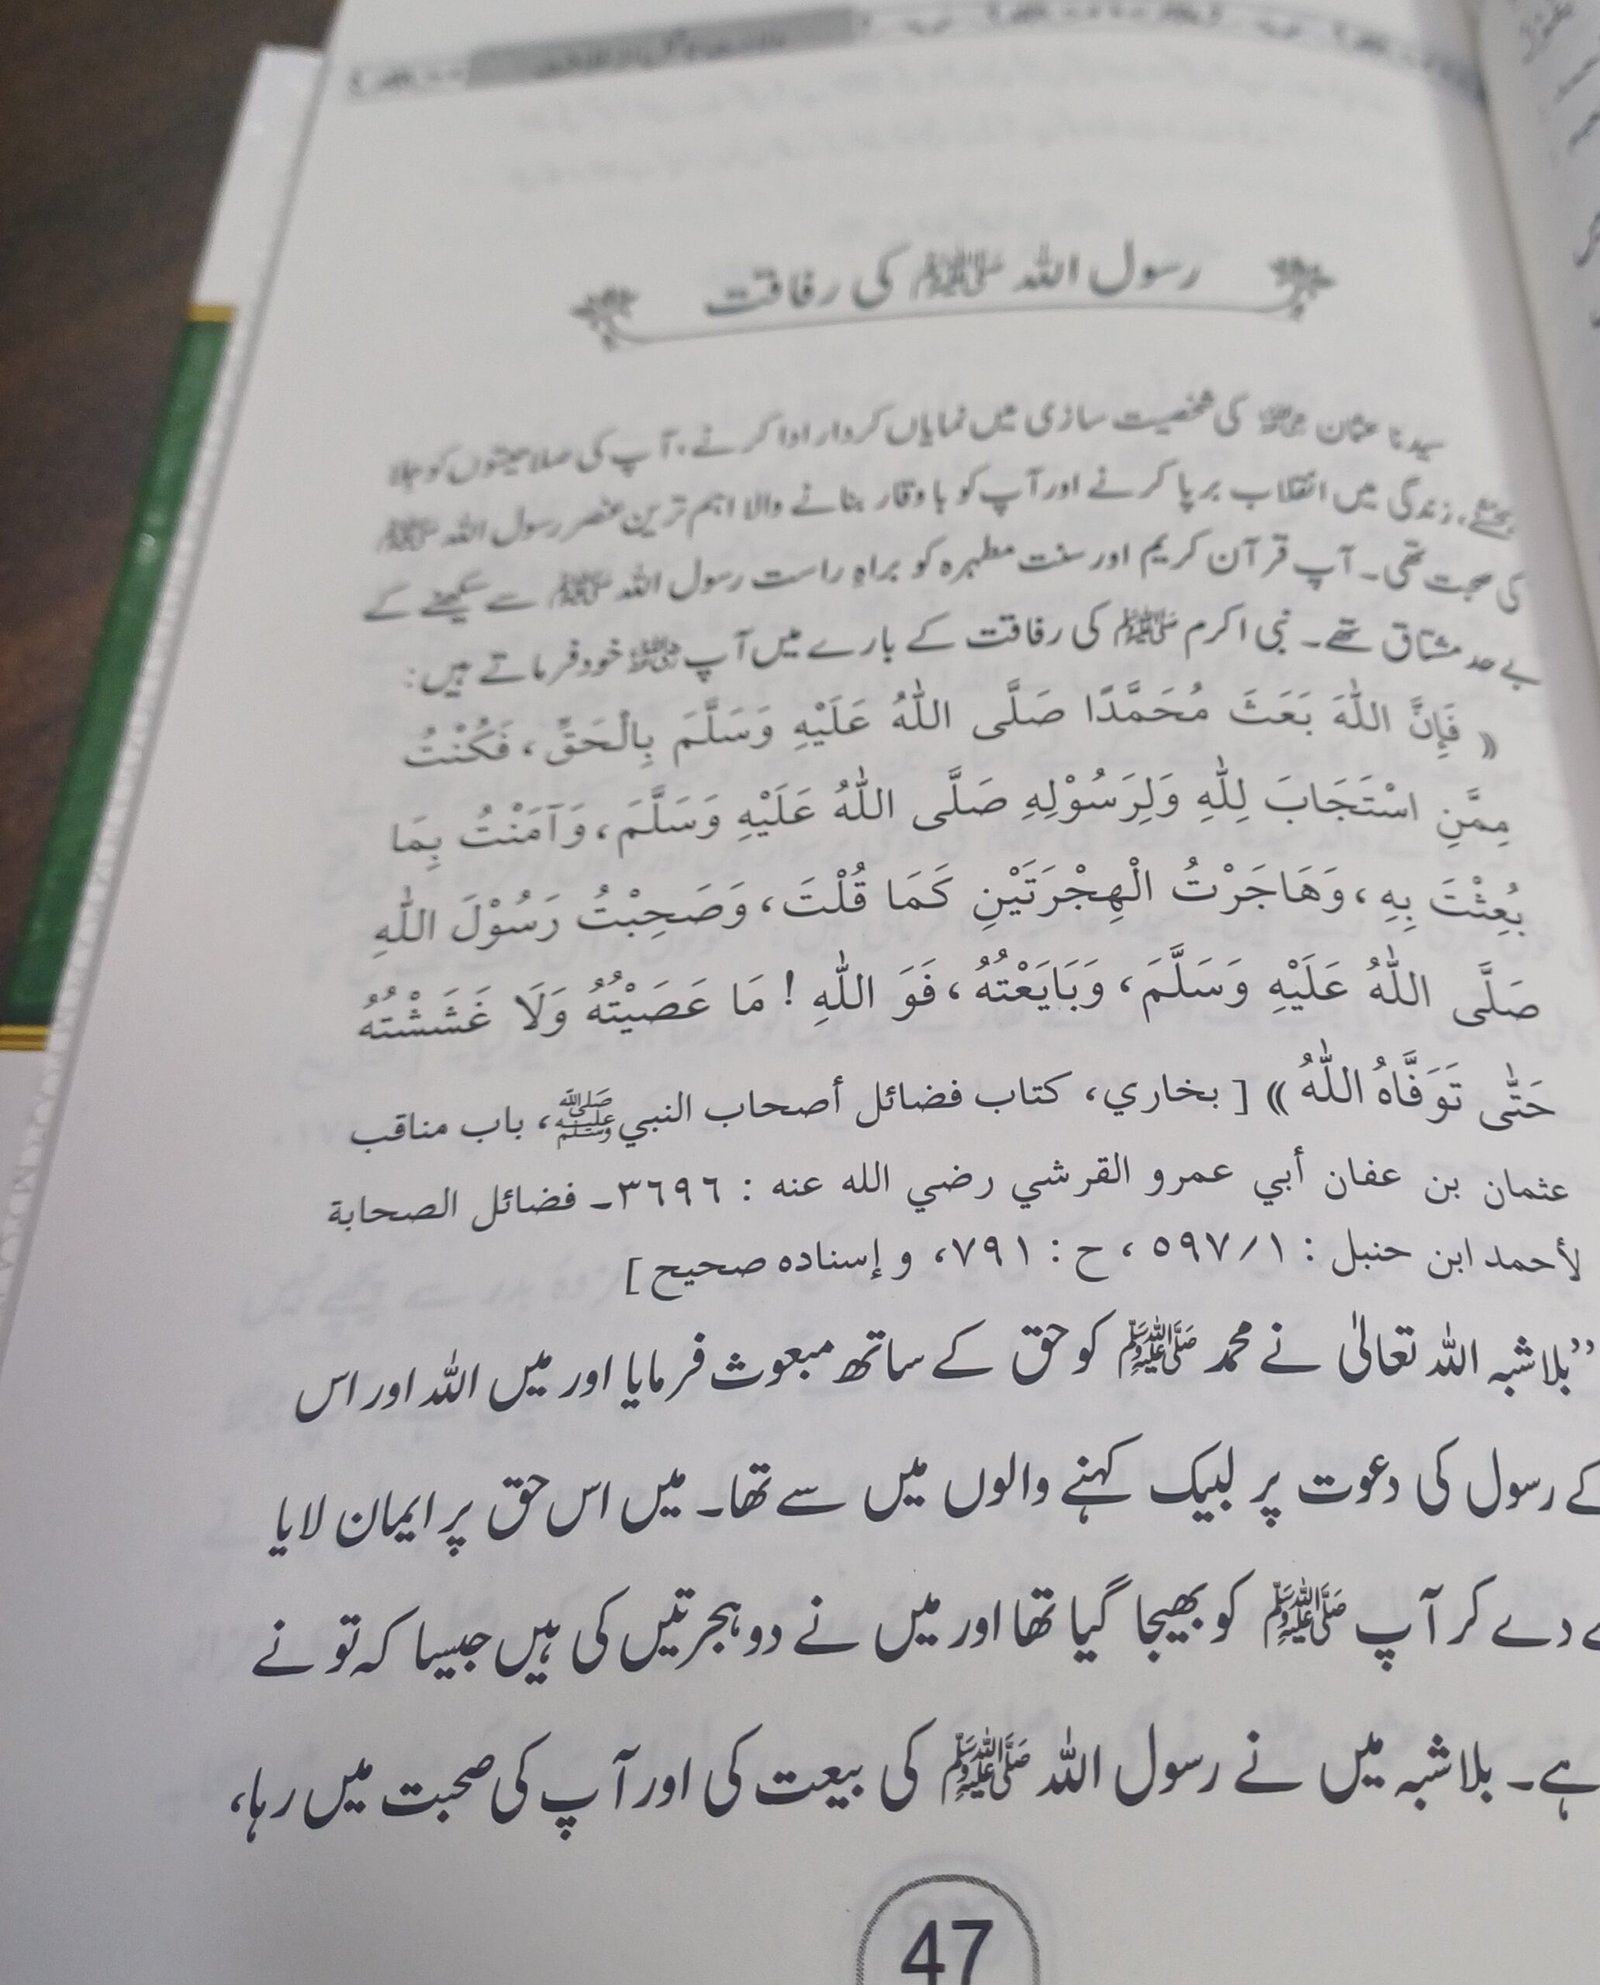 رسول اللہ ﷺ کی رفاقت
سیدنا عثمان رضی اللہ عنہ کی شخصیت سازی میں نمایاں کردار ادا کرنے، آپ کی صلاحیتوں کو جلا
بخشنے، زندگی میں انقلاب برپا کرنے اور آپ کو باوقار بنانے والا اہم ترین عنصر رسول اللہ ﷺ
کی صحبت تھی۔ آپ قرآن کریم اور سنت مطہرہ کو براہِ راست رسول اللہ ﷺ سے سیکھنے کے
بے حد مشتاق تھے۔ نبی اکرم ﷺ کی رفاقت کے بارے میں آپ رضی اللہ عنہ خود فرماتے ہیں:
« فَإِنَّ اللّٰهَ بَعَثَ مُحَمَّدًا صَلَّى اللّٰهُ عَلَيْهِ وَسَلَّمَ بِالْحَقِّ، فَكُنْتُ
مِمَّنِ اسْتَجَابَ لِلّٰهِ وَلِرَسُوْلِهِ صَلَّى اللّٰهُ عَلَيْهِ وَسَلَّمَ، وَآمَنْتُ بِمَا
بُعِثْتَ بِهِ، وَهَاجَرْتُ الْهِجْرَتَيْنِ كَمَا قُلْتَ، وَصَحِبْتُ رَسُوْلَ اللّٰهِ
صَلَّى اللّٰهُ عَلَيْهِ وَسَلَّمَ، وَبَايَعْتُهُ، فَوَ اللّٰهِ! مَا عَصَيْتُهُ وَلَا غَشَشْتُهُ
حَتّٰى تَوَفَّاهُ اللّٰهُ » [ بخاري، كتاب فضائل أصحاب النبي ﷺ، باب مناقب
عثمان بن عفان أبي عمرو القرشي رضي الله عنه : ٣٦٩٦۔ فضائل الصحابة
لأحمد ابن حنبل : ٥٩٧/١، ح : ٧٩١، و إسناده صحيح ]
”بلاشبہ اللہ تعالیٰ نے محمد ﷺ کو حق کے ساتھ مبعوث فرمایا اور میں اللہ اور اس
کے رسول کی دعوت پر لبیک کہنے والوں میں سے تھا۔ میں اس حق پر ایمان لایا
دے کر آپ ﷺ کو بھیجا گیا تھا اور میں نے دو ہجرتیں کی ہیں جیسا کہ تو نے
ہے۔ بلاشبہ میں نے رسول اللہ ﷺ کی بیعت کی اور آپ کی صحبت میں رہا،
47